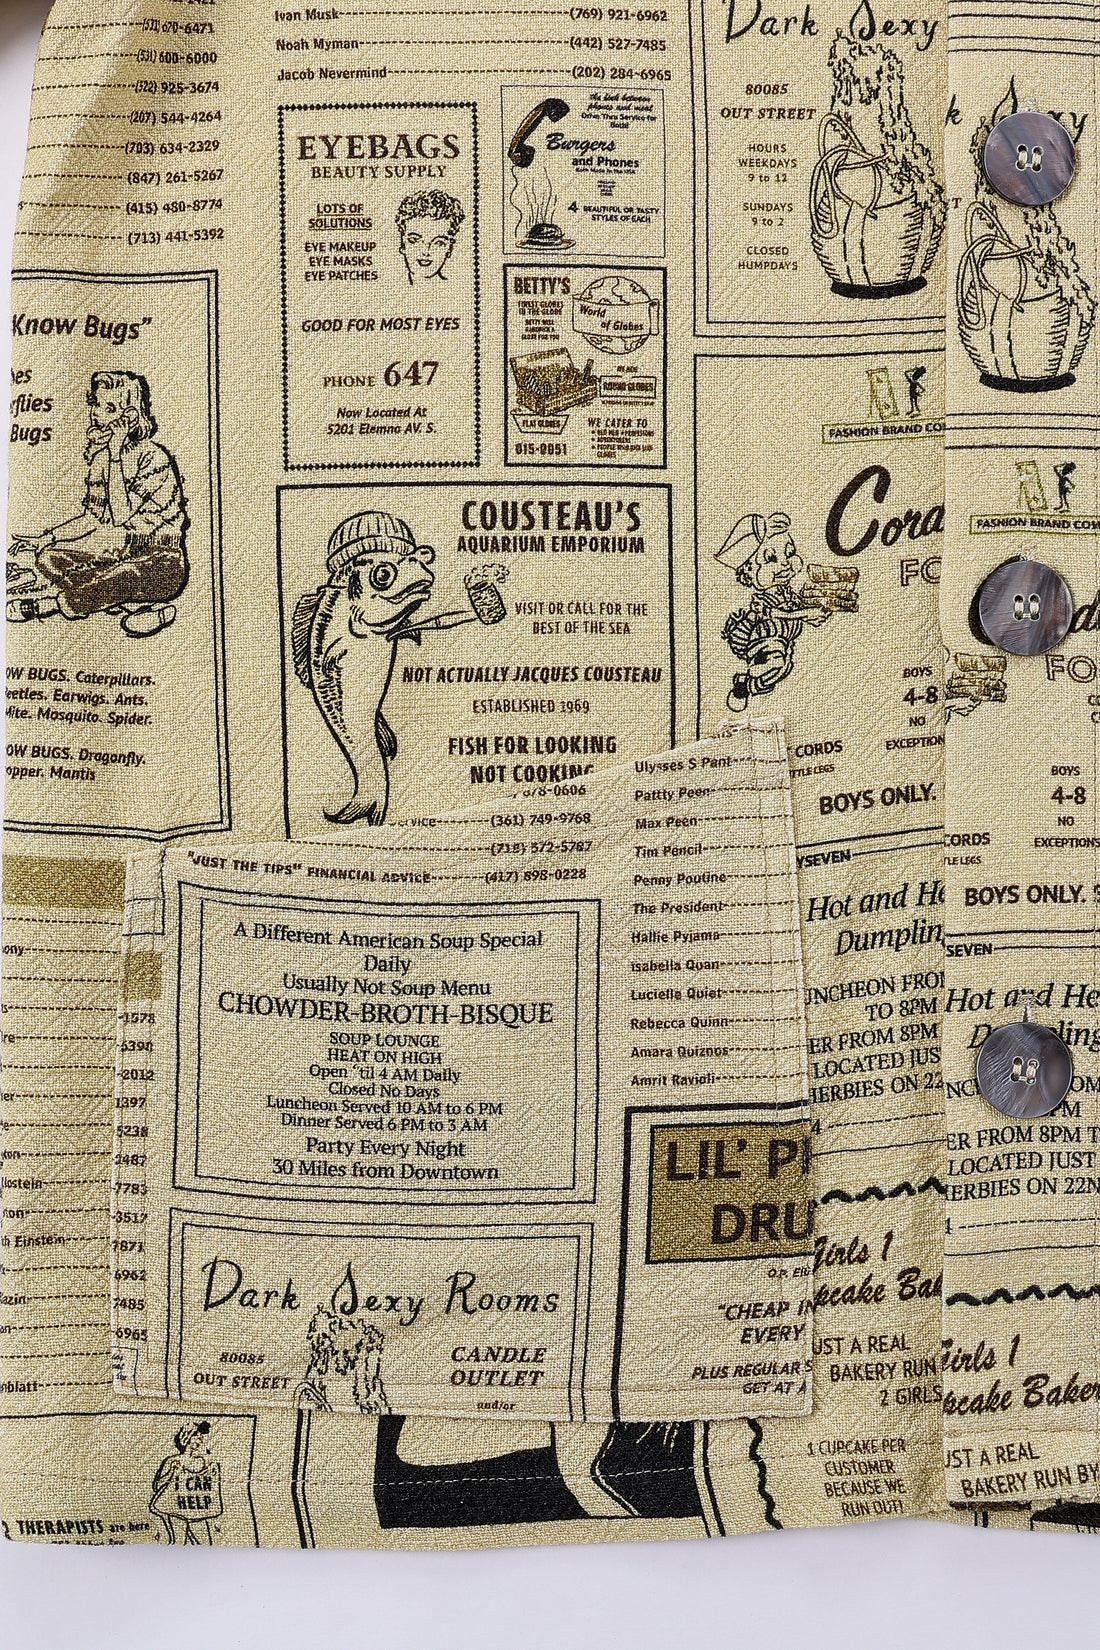 (571) 670-6471
(531) 600-6000
(522) 925-3674
(207) 544-4264
(703) 634-2329
(847) 261-5267
(415) 480-8774
(713) 441-5392
Ivan Musk (769) 921-6962
Noah Myman (442) 527-7485
Jacob Nevermind (202) 284-6965
EYEBAGS
BEAUTY SUPPLY
LOTS OF
SOLUTIONS
EYE MAKEUP
EYE MASKS
EYE PATCHES
GOOD FOR MOST EYES
PHONE 647
Now Located At
5201 Elemno AV. S.
Drive Thru Service for
Both!
Burgers
and Phones
4 BEAUTIFUL OR TASTY
STYLES OF EACH
BETTY'S
FINEST GLOBES
IN THE GLOBE
BETTY WILL
HANDPICK A
GLOBE FOR YOU
World
of Globes
WE ALSO
ROUND GLOBES
FLAT GLOBES
WE CATER TO
015-0051
Dark Sexy
80085
OUT STREET
HOURS
WEEKDAYS
9 to 12
SUNDAYS
9 to 2
CLOSED
HUMPDAYS
k Sexy
Know Bugs"
es
rflies
Bugs
OW BUGS. Caterpillars.
eetles. Earwigs. Ants.
Mite. Mosquito. Spider.
OW BUGS. Dragonfly.
opper. Mantis
COUSTEAU'S
AQUARIUM EMPORIUM
VISIT OR CALL FOR THE
BEST OF THE SEA
NOT ACTUALLY JACQUES COUSTEAU
ESTABLISHED 1969
FISH FOR LOOKING
NOT COOKING
FASHION BRAND CO
Cord
FO
BOYS
4-8
NO
EXCEPTION
CORDS
TTLE LEGS
BOYS ONLY.
FASHION BRAND COM
FO
BOYS
4-8
NO
EXCEPTIONS
CORDS
LE LEGS
BOYS ONLY. S
678-0606
ervice (361) 749-9768
(718) 572-5787
"JUST THE TIPS" FINANCIAL ADVICE (417) 898-0228
A Different American Soup Special
Daily
Usually Not Soup Menu
CHOWDER-BROTH-BISQUE
SOUP LOUNGE
HEAT ON HIGH
Open 'til 4 AM Daily
Closed No Days
Luncheon Served 10 AM to 6 PM
Dinner Served 6 PM to 3 AM
Party Every Night
30 Miles from Downtown
Ulysses S Pant
Pattty Peen
Max Peen
Tim Pencil
Penny Poutine
The President
Hallie Pyjama
Isabella Quan
Lucielle Quiet
Rebecca Quinn
Amara Quiznos
Amrit Ravioli
LIL' PI
DRU
"CHEAP IN
EVERY
PLUS REGULAR S
GET AT A
Dark Sexy Rooms
80085
OUT STREET
CANDLE
OUTLET
and/or
ony
re
lostein
h Einstein
azin
nblatt
-1578
6398
-2012
1397
5238
2487
7783
-3517
7871
6962
7485
6965
YSEVEN
Hot and He
Dumplin
UNCHEON FRO
TO 8PM
ER FROM 8PM
LOCATED JUS
HERBIES ON 22
4
Girls 1
pcake Bak
UST A REAL
BAKERY RUN
2 GIRLS
1 CUPCAKE PER
CUSTOMER
BECAUSE WE
RUN OUT!
SEVEN
Hot and He
D ling
ER FROM 8PM T
LOCATED JUST
HERBIES ON 22N
Girls 1
pcake Baker
UST A REAL
BAKERY RUN BY
I CAN
HELP
THERAPISTS are here